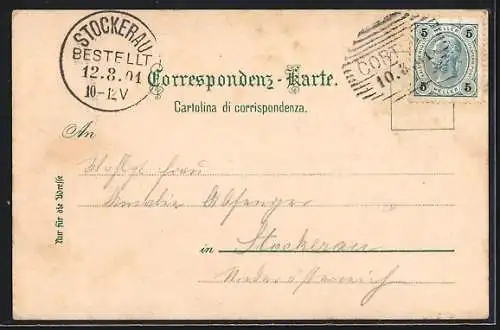 STOCKERAU
BESTELLT
12.8.01
10-12V
5 5
HELLER
CORT
10.8
Correspondenz-Karte.
Cartolina di corrispondenza.
An
Nur für die Adresse
Frau
Amalie
in Stockerau
Niederösterreich